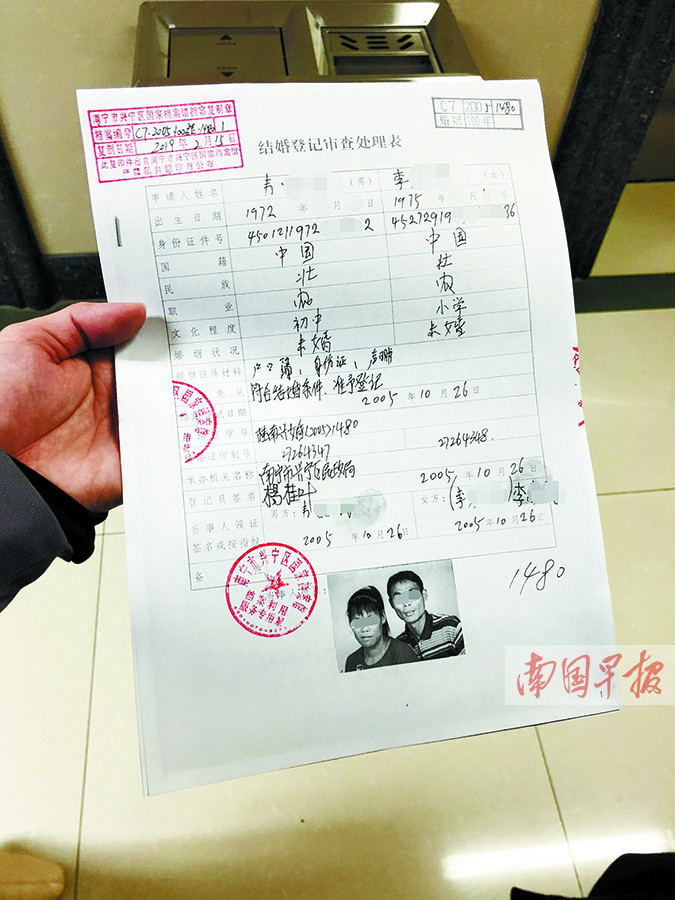 南宁市兴宁区国家档案馆档案复制章
档案编号 C7-2005-1480
复制日期 2019年2月15日
此复印件出自南宁市兴宁区国家档案馆
C7 2005 1480
婚姻 100年
结婚登记审查处理表
申请人姓名 青 (男) 李 (女)
出生日期 1972 年 月 日 1975 年 月 日
身份证件号 4501211972 2 45272919 36
国籍 中国 中国
民族 壮 壮
职业 农 农
文化程度 初中 小学
婚姻状况 未婚 未婚
提供证件材料 户口簿、身份证、声明
意见 符合结婚条件.准予登记
日期 2005 年 10 月 26 日
字号 兴婚(2005)1480
证印制号 27264347 27264348
承办机关名称 南宁市兴宁区民政局 2005 年 10 月 26 日
登记员签名 杨桂叶
当事人领证 男方: 青 女方: (李 (李
签名或按指纹 2005 年 10 月 26 日 2005 年 10 月 26 日
备
当事人
南宁市兴宁区国家档案馆
档案利用
专用章
1480
南国早报